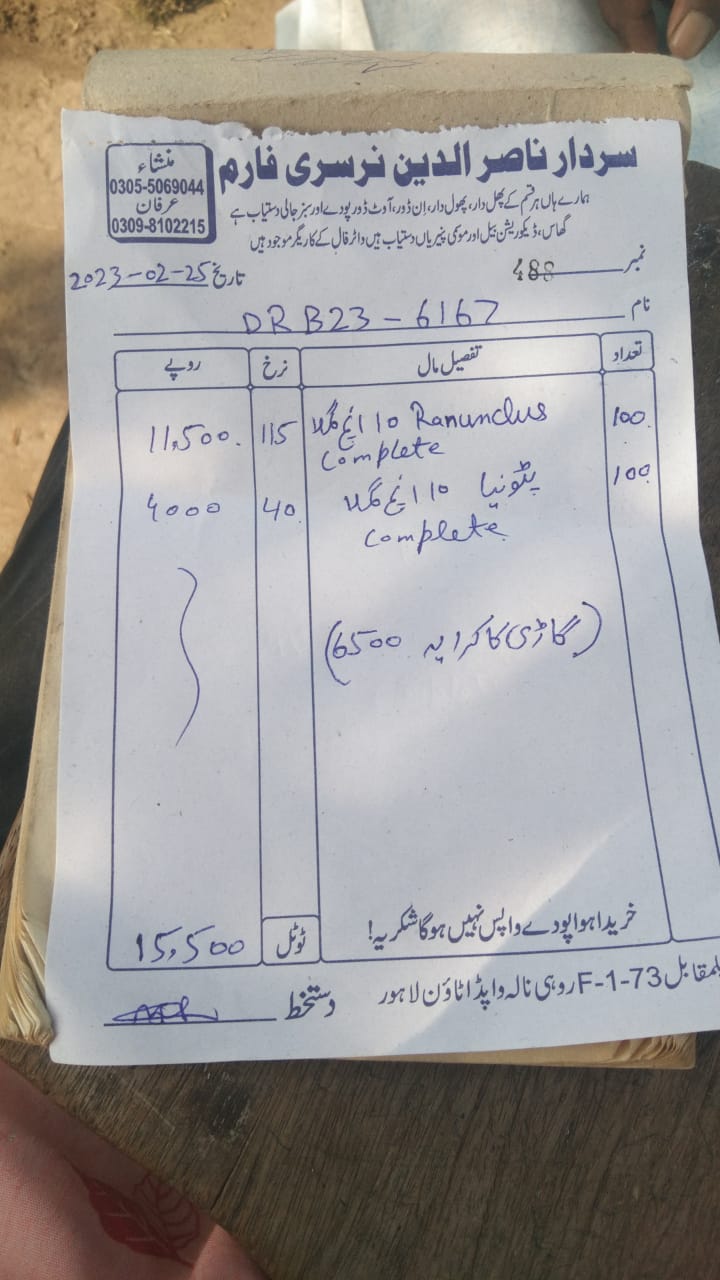 سردار ناصر الدین نرسری فارم
منشاء
0305-5069044
عرفان
0309-8102215
ہمارے ہاں ہر قسم کے پھل دار، پھول دار، اِن ڈور، آوٹ ڈور پودے اور سبز جالی دستیاب ہے
گھاس، ڈیکوریشن بیل اور موسمی پنیریاں دستیاب ہیں واٹر فال کے کاریگر موجود ہیں
نمبر 488 تاریخ 2023-02-25
نام DRB23-6167
تعداد تفصیل مال نرخ روپے
100 Ranunclus 10 انچ گملا 115 11,500
complete
100 پٹونیا 10 انچ گملا 40 4000
complete
(گاڑی کا کرایہ 6500)
خریدا ہوا پودے واپس نہیں ہوگا شکریہ! ٹوٹل 15,500
بلمقابل F-1-73 روہی نالہ واپڈا ٹاؤن لاہور دستخط